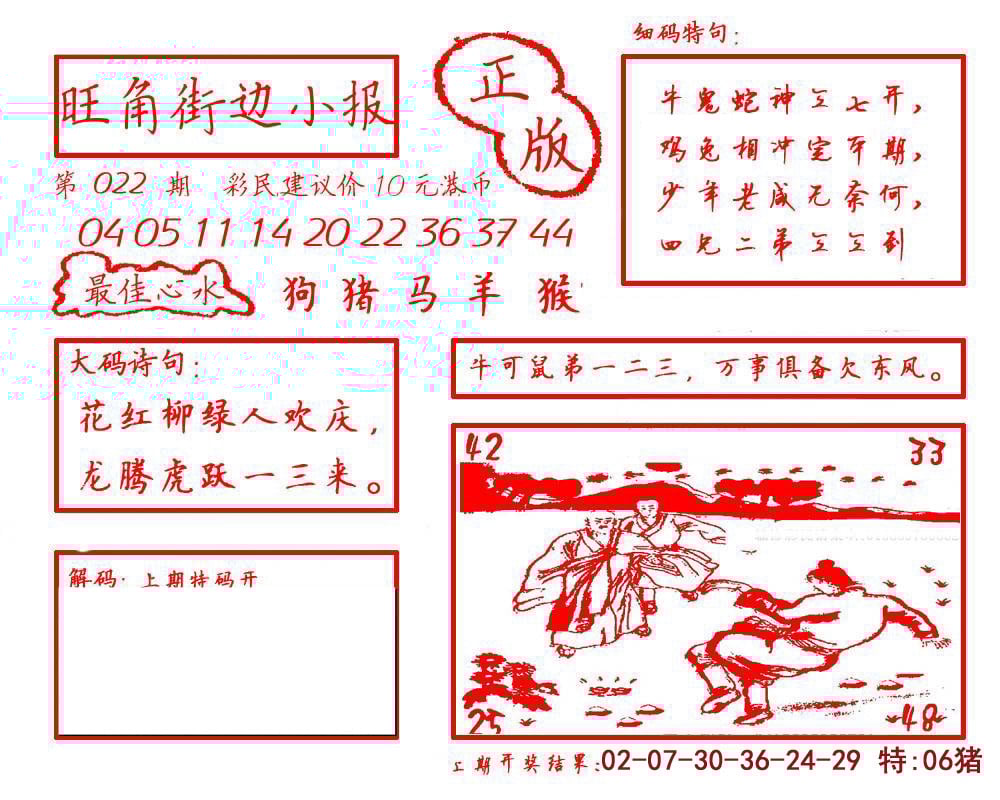 旺角街边小报
正版
第 022 期 彩民建议价 10 元港币
04 05 11 14 20 22 36 37 44
最佳心水 狗 猪 马 羊 猴
细码特句：
牛鬼蛇神三七开，
鸡兔相冲定本期，
少年老成无奈何，
四兄二弟三三到
大码诗句：
花红柳绿人欢庆，
龙腾虎跃一三来。
牛可鼠弟一二三，万事俱备欠东风。
解码·上期特码开
42
33
25
48
上期开奖结果：02-07-30-36-24-29 特:06猪